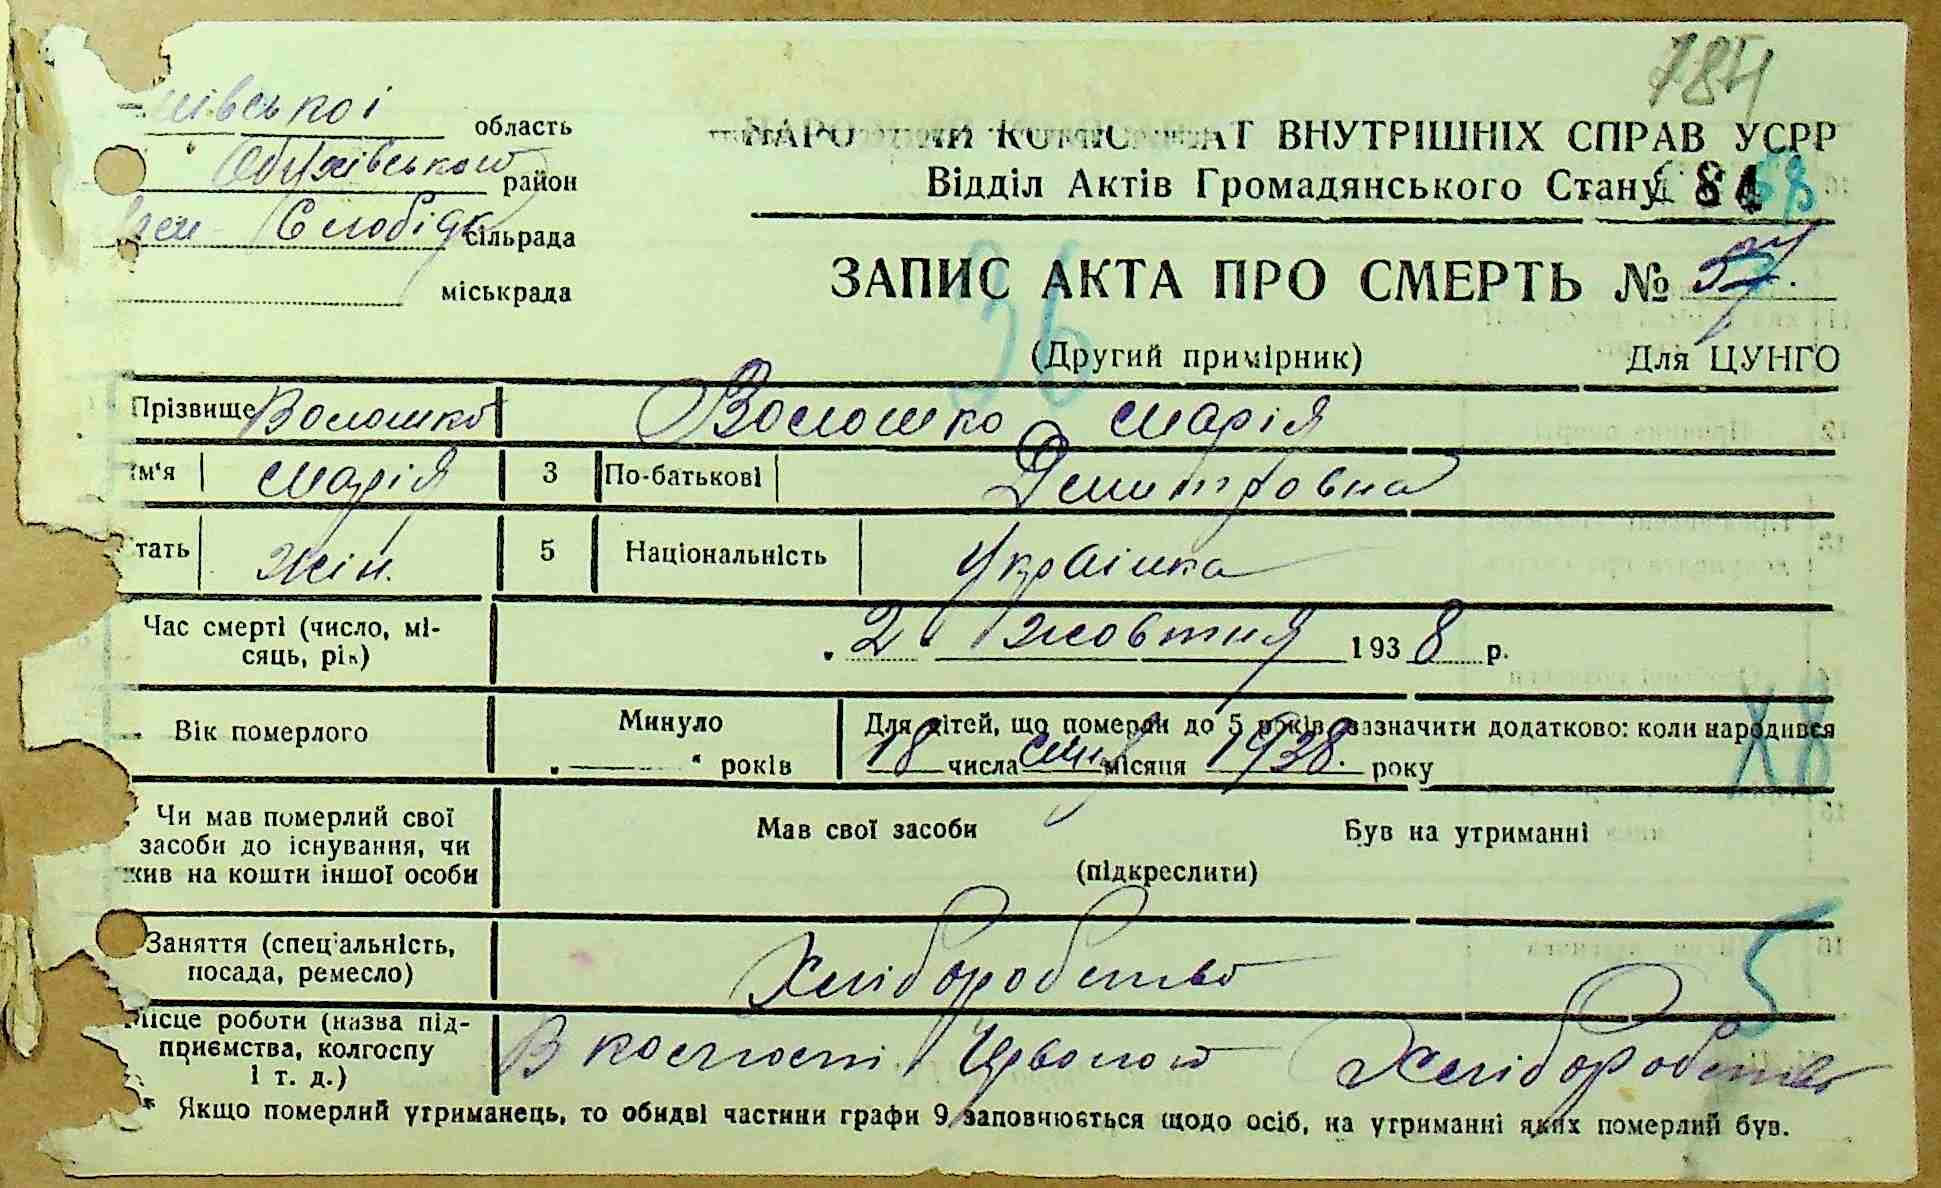 784
ївської область
НАРО КОМІС АТ ВНУТРІШНІХ СПРАВ УСРР
Обухівського район
Відділ Актів Громадянського Стану 81
Слобідк сільрада
міськрада
ЗАПИС АКТА ПРО СМЕРТЬ № 57.
36
(Другий примірник) Для ЦУНГО
Прізвище Волошко Волошко Марія
ім'я Марія 3 По-батькові Дмитровна
тать жін. 5 Національність Українка
Час смерті (число, мі-
сяць, рік) 2 жовтня 1938 р.
Вік померлого Минуло — років
Для дітей, що померли до 5 років, зазначити додатково: коли народився
18 числа місяця 1938. року
Х8
Чи мав померлий свої
засоби до існування, чи
жив на кошти іншої особи
Мав свої засоби Був на утриманні
(підкреслити)
Заняття (спеціальність,
посада, ремесло) Хліборобство
5
Місце роботи (назва під-
приємства, колгоспу
і т. д.) В колгоспі Хлібороботво
* Якщо померлий утриманець, то обидві частини графи 9 заповнюється щодо осіб, на утриманні яких померлий був.